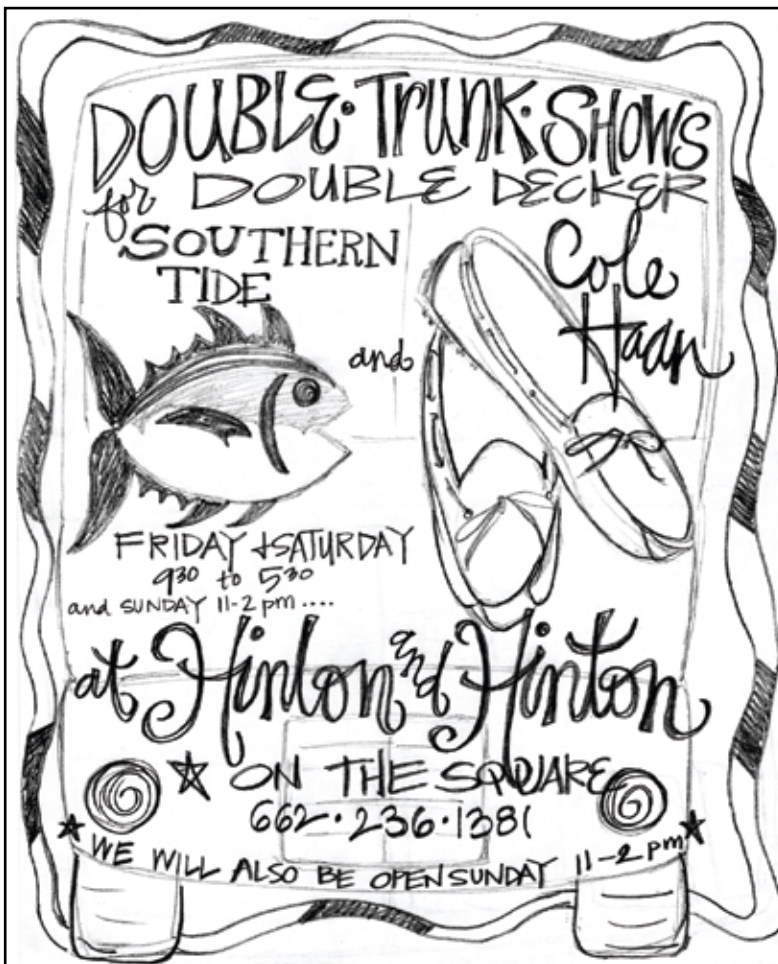 DOUBLE • TRUNK • SHOWS
for DOUBLE DECKER
SOUTHERN
TIDE
and
Cole
Haan
FRIDAY + SATURDAY
9³⁰ to 5³⁰
and SUNDAY 11-2 pm ....
at Hinton and Hinton
ON THE SQUARE
662 • 236 • 1381
WE WILL ALSO BE OPEN SUNDAY 11-2 pm